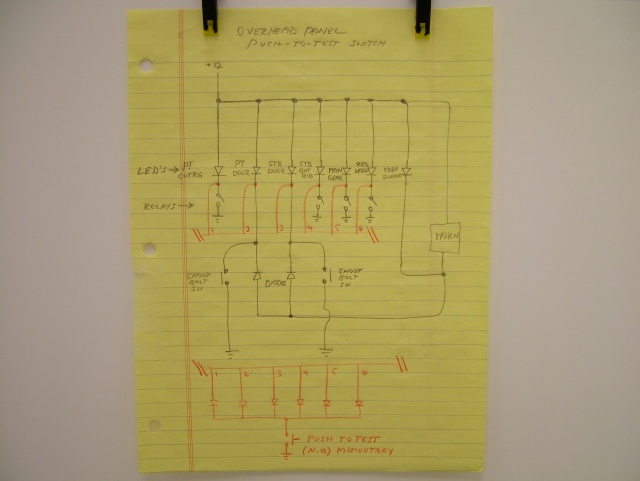 OVERHEAD PANEL
PUSH-TO-TEST SWITCH
+12
LED'S → PT OUTRIG
PT DOOR
STB DOOR
STB OUT RIG
MAIN GEAR
HORN DIODE
RELAYS →
1 2 3 4 5 6
HORN
SHOOT BOLT SW
DIODES
SHOOT BOLT SW
1 2 3 4 5 6
PUSH TO TEST
(N.O) MOMENTARY